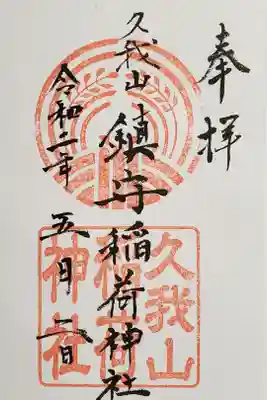 奉拝
久我山
鎮守稲荷神社
令和二年五月二日
久我山
稲荷
神社